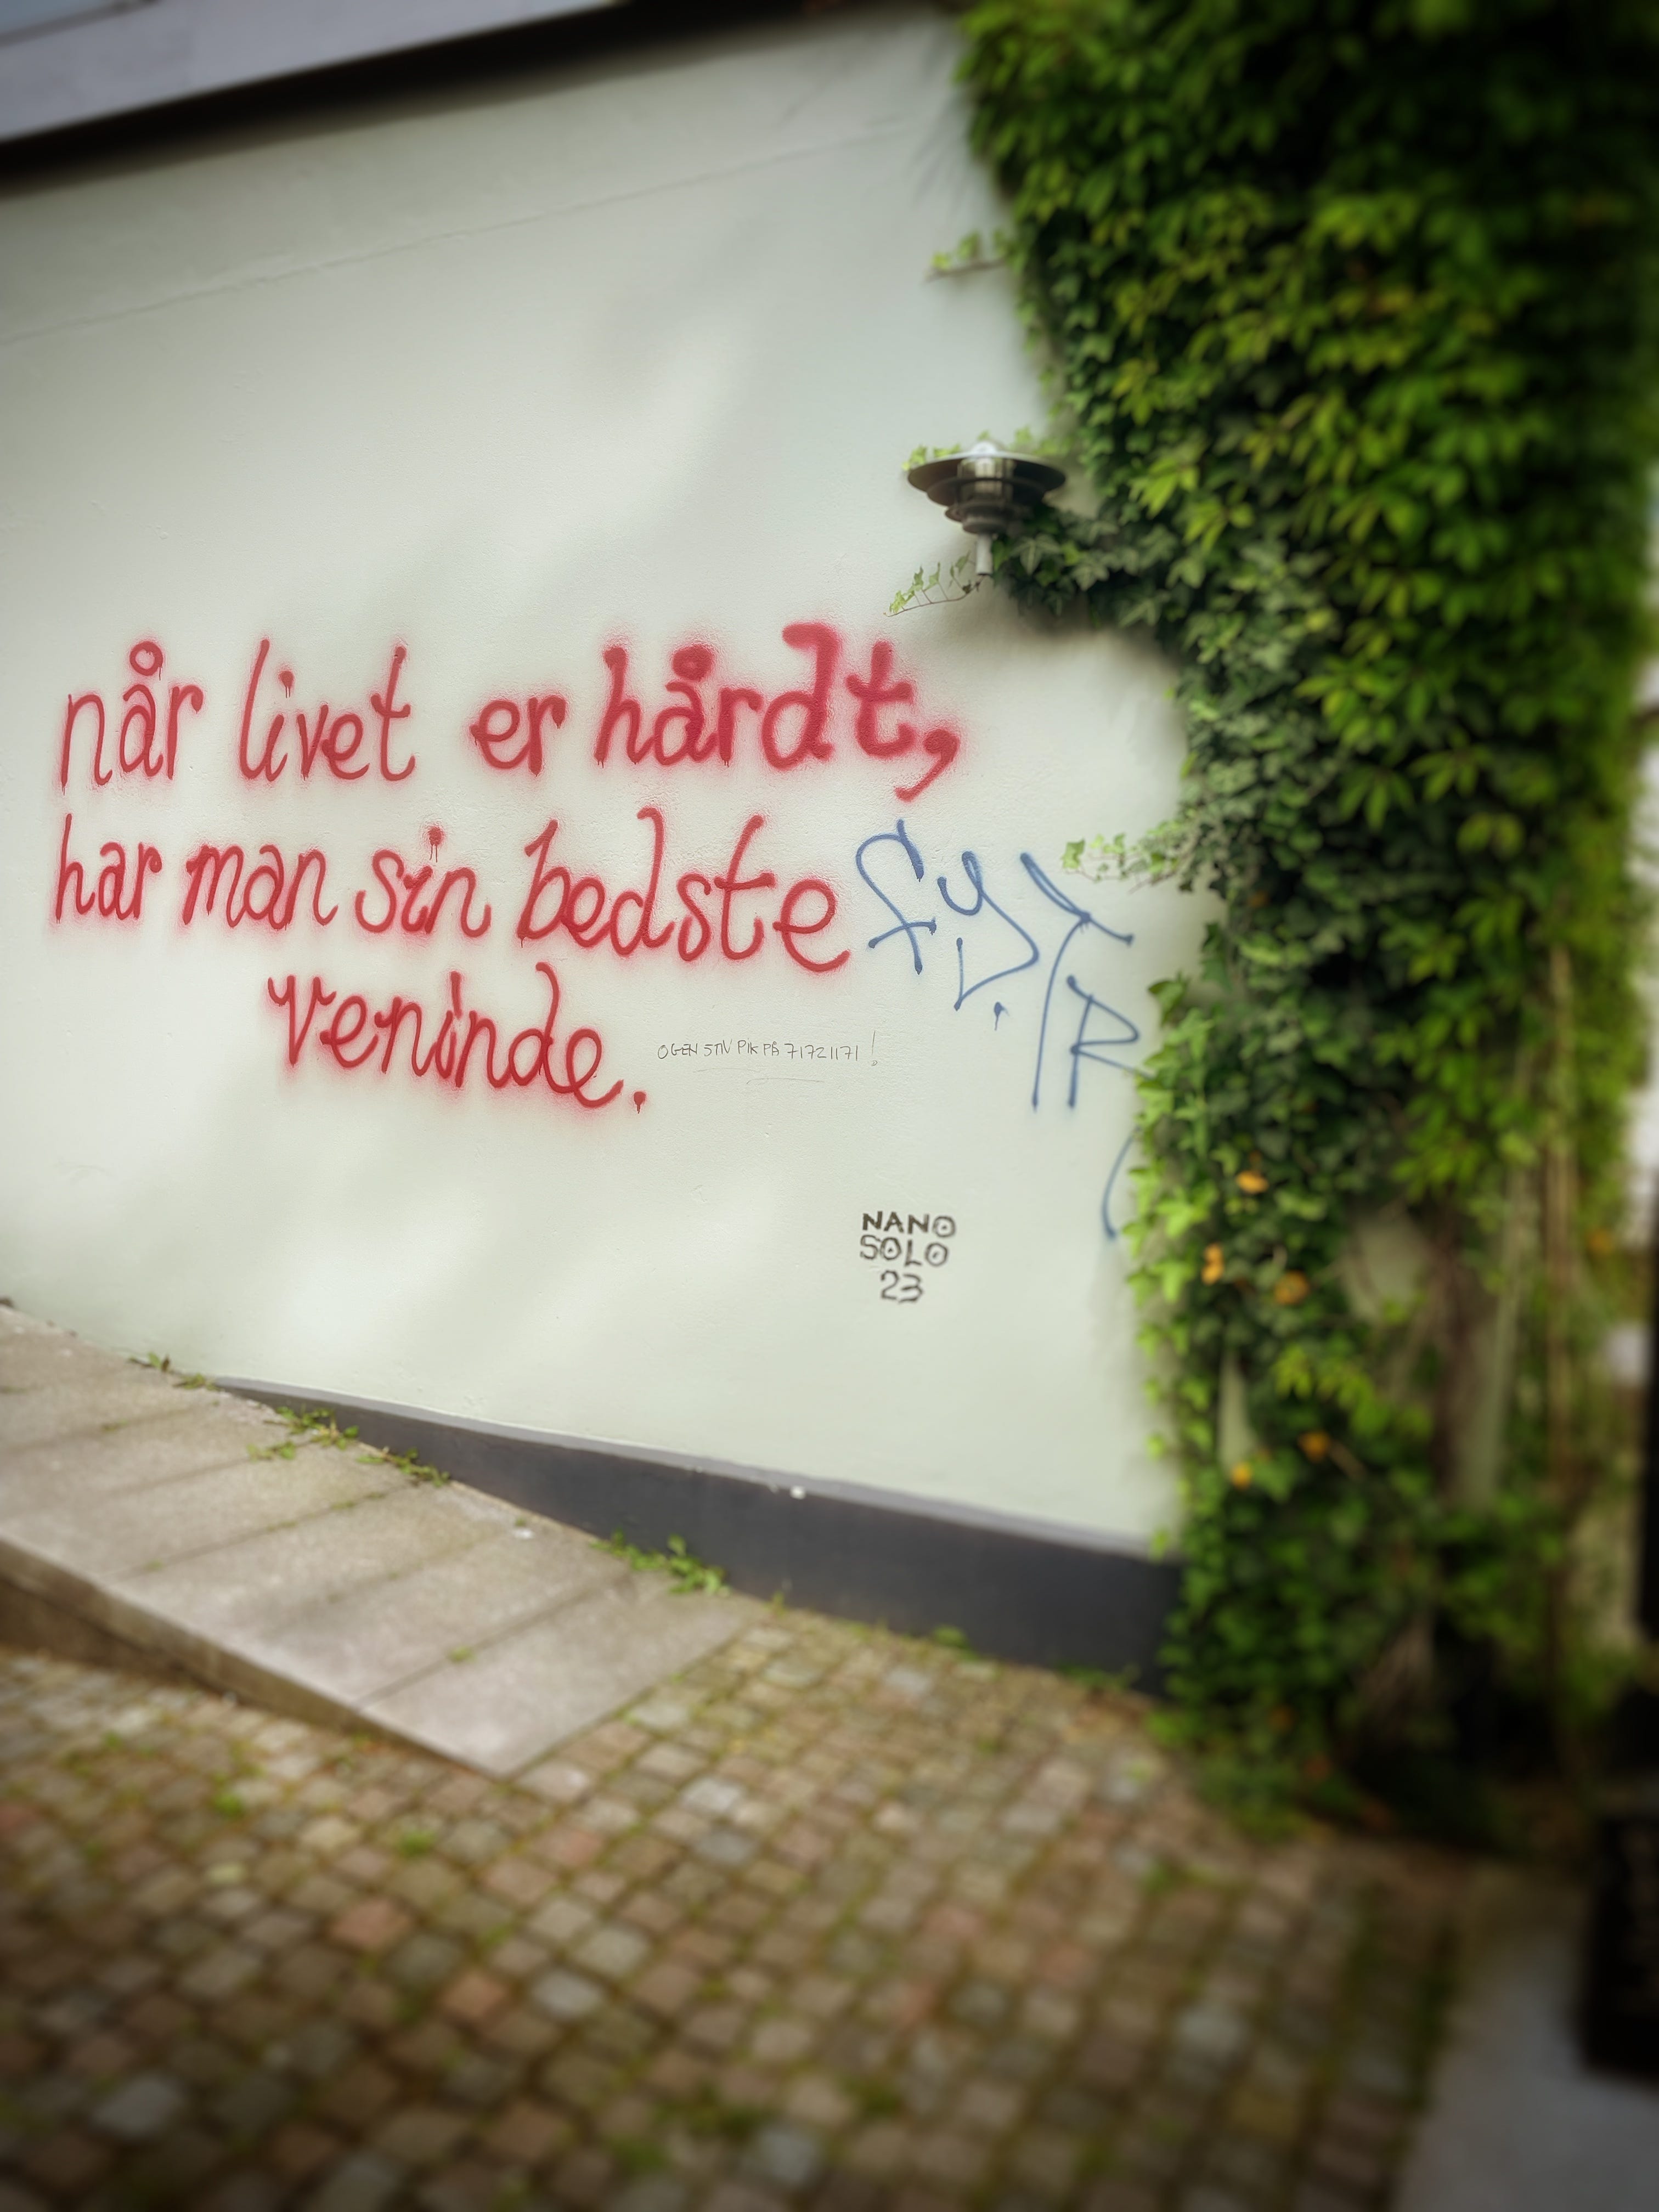 når livet er hårdt,
har man sin bedste
veninde.
OGEN STIV PIK PÅ 71721171!
NANO
SOLO
23